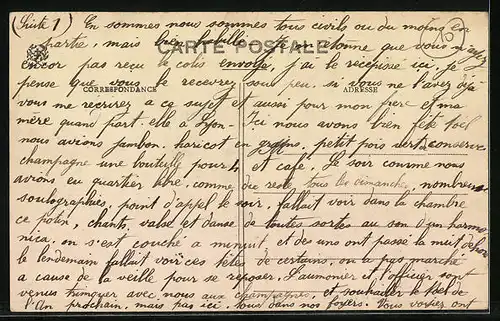 (Suite 1) En sommes nous sommes tous civils ou du moins en
partie, mais bien habillé on étonne que vous n'ayez
CARTE POSTALE
encor pas reçu le colis envoyé, j'ai le récépissé ici, je
pense que vous le recevrez sous peu. si vous ne l'avez déjà
CORRESPONDANCE
ADRESSE
vous me recrirez a ce sujet et aussi pour mon père et ma
mère quand part-elle a Lyon-
Ici nous avons bien fêté Noel
nous avions jambon, haricot en grains, petit pois vert conserve
champagne une bouteille pour 4 et café. Le soir comme nous
avions eu quartier libre, comme du reste tous les dimanches, nombreuses
soulographies, point d'appel le soir, fallait voir dans la chambre
ce potin, chants, valse et danse de toutes sortes au son d'un harmo
nica, on s'est couché a minuit et des uns ont passé la nuit dehors
le lendemain fallait voir ces têtes de certains, on a pas marché
a cause de la veille pour se reposer, l'aumonier et l'officier sont
venus trinquer avec nous aux champagnes, et souhaiter le Noel de
l'An prochain, mais pas ici, tous dans nos foyers. Vous voyez ont